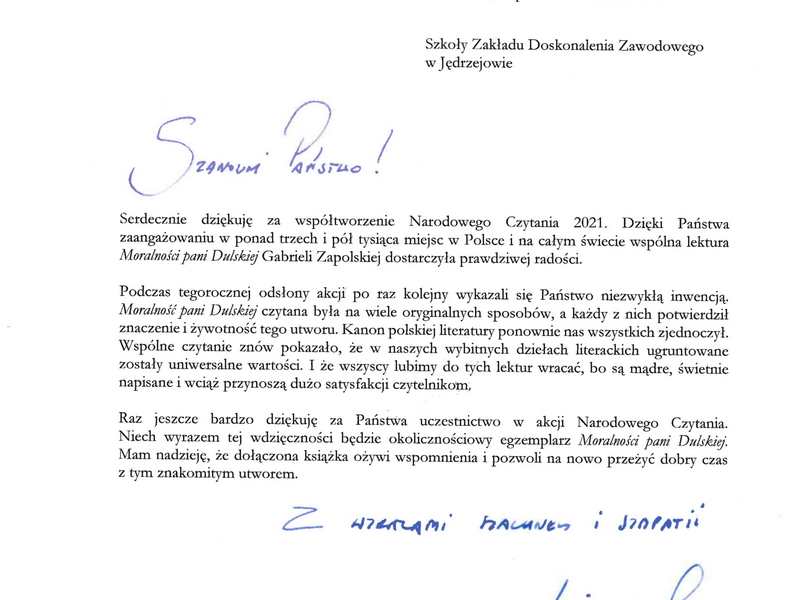 Szkoły Zakładu Doskonalenia Zawodowego
w Jędrzejowie
Szanowni Państwo!
Serdecznie dziękuję za współtworzenie Narodowego Czytania 2021. Dzięki Państwa
zaangażowaniu w ponad trzech i pół tysiąca miejsc w Polsce i na całym świecie wspólna lektura
Moralności pani Dulskiej Gabrieli Zapolskiej dostarczyła prawdziwej radości.
Podczas tegorocznej odsłony akcji po raz kolejny wykazali się Państwo niezwykłą inwencją.
Moralność pani Dulskiej czytana była na wiele oryginalnych sposobów, a każdy z nich potwierdził
znaczenie i żywotność tego utworu. Kanon polskiej literatury ponownie nas wszystkich zjednoczył.
Wspólne czytanie znów pokazało, że w naszych wybitnych dziełach literackich ugruntowane
zostały uniwersalne wartości. I że wszyscy lubimy do tych lektur wracać, bo są mądre, świetnie
napisane i wciąż przynoszą dużo satysfakcji czytelnikom.
Raz jeszcze bardzo dziękuję za Państwa uczestnictwo w akcji Narodowego Czytania.
Niech wyrazem tej wdzięczności będzie okolicznościowy egzemplarz Moralności pani Dulskiej.
Mam nadzieję, że dołączona książka ożywi wspomnienia i pozwoli na nowo przeżyć dobry czas
z tym znakomitym utworem.
Z wyrazami szacunku i sympatii